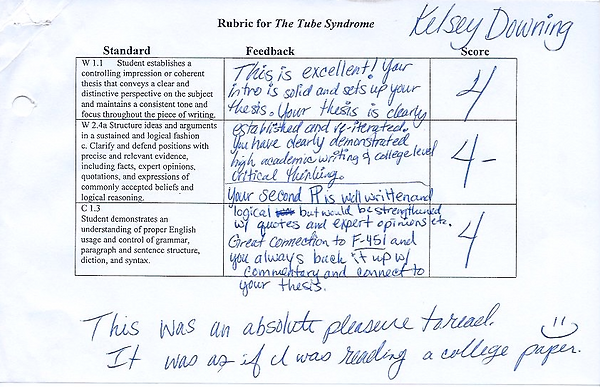 Kelsey Downing
Rubric for The Tube Syndrome
Standard Feedback Score
W 1.1 Student establishes a
controlling impression or coherent
thesis that conveys a clear and
distinctive perspective on the subject
and maintains a consistent tone and
focus throughout the piece of writing.
This is excellent! Your
intro is solid and sets up your
thesis. Your thesis is clearly
4
W 2.4a Structure ideas and arguments
in a sustained and logical fashion
c. Clarify and defend positions with
precise and relevant evidence,
including facts, expert opinions,
quotations, and expressions of
commonly accepted beliefs and
logical reasoning.
established and re-iterated.
You have clearly demonstrated
high academic writing & college level
critical thinking.
Your second ¶ is well written and
4-
C 1.3
Student demonstrates an
understanding of proper English
usage and control of grammar,
paragraph and sentence structure,
diction, and syntax.
logical but would be strengthened
w/ quotes and expert opinions etc.
Great connection to F-451 and
you always back it up w/
commentary and connect to
your thesis.
4
This was an absolute pleasure to read.
It was as if I was reading a college paper.